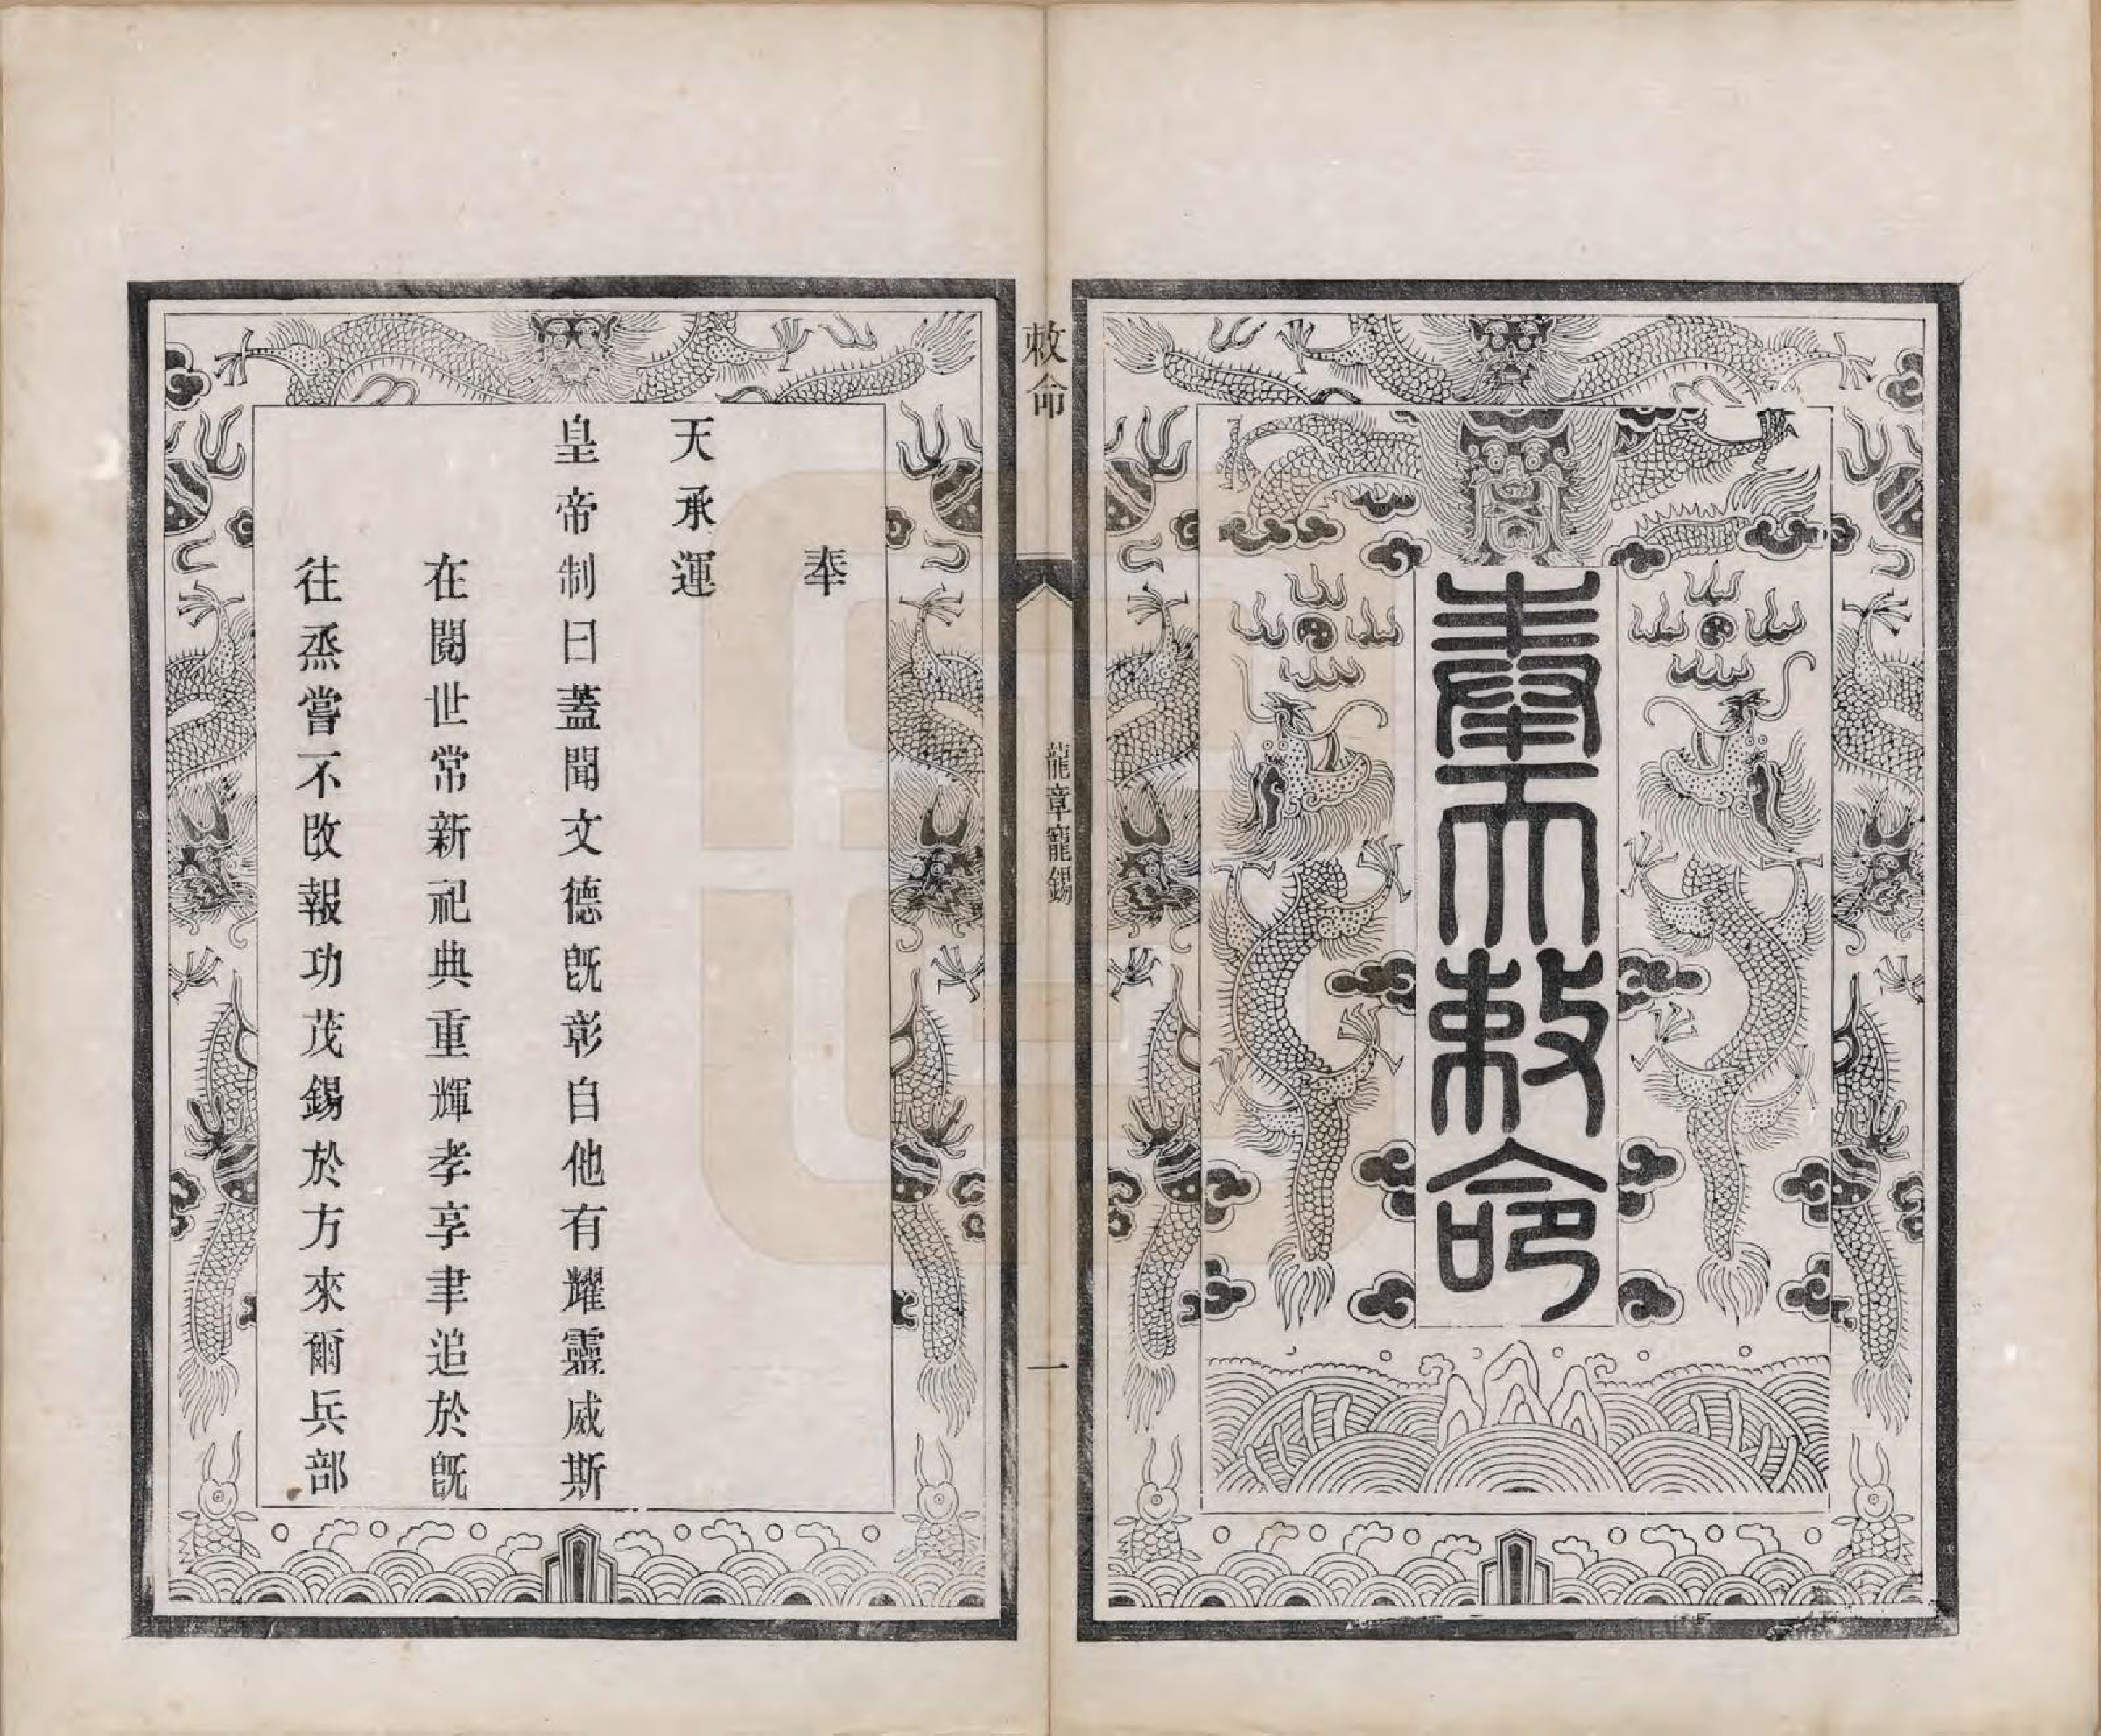 奉天敕命
敕命
龍章寵錫
一
奉
天承運
皇帝制曰蓋聞文德旣彰自他有耀靈威斯
在閱世常新祀典重輝孝享聿追於旣
往烝嘗不改報功茂錫於方來爾兵部